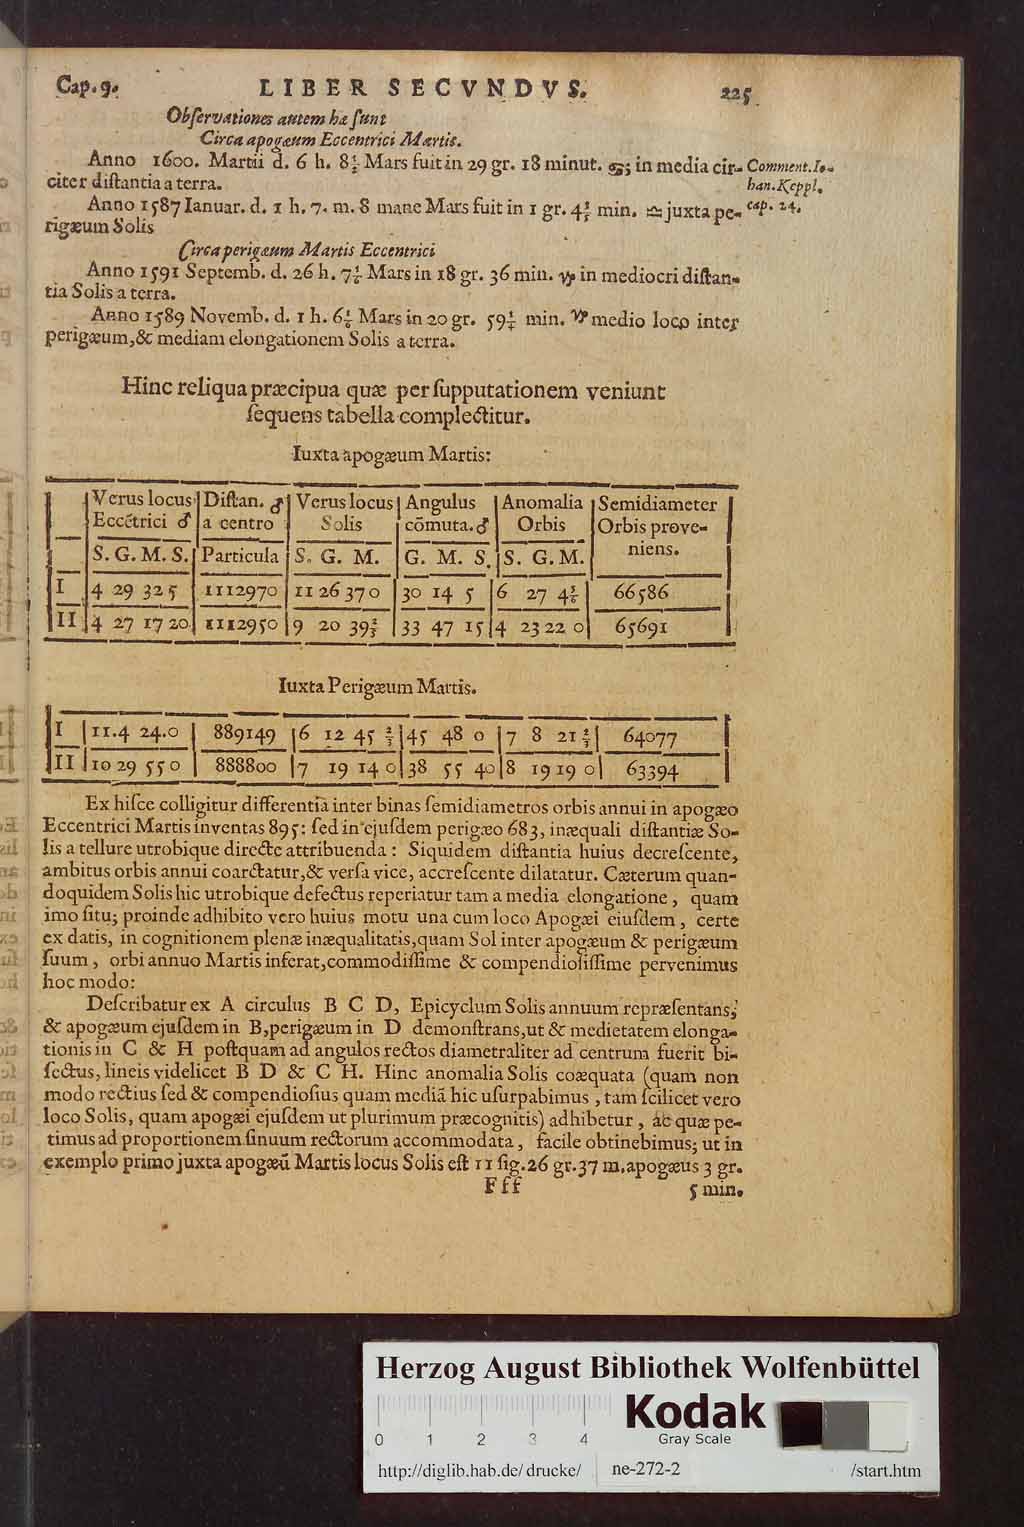 Cap. 9. LIBER SECVNDVS. 225
Obſervationes autem hæ ſunt
Circa apogæum Eccentrici Martis.
Anno 1600. Martii d. 6 h. 8½ Mars fuit in 29 gr. 18 minut. ♋; in media cir-
citer diſtantia a terra.
Comment. Io-
han. Keppl.
cap. 24.
Anno 1587 Ianuar. d. 1 h. 7. m. 8 mane Mars fuit in 1 gr. 4⅔ min. ♎ juxta pe-
rigæum Solis
Circa perigæum Martis Eccentrici
Anno 1591 Septemb. d. 26 h. 7⅙ Mars in 18 gr. 36 min. ♑ in mediocri diſtan-
tia Solis a terra.
Anno 1589 Novemb. d. 1 h. 6⅙ Mars in 20 gr. 59¼ min. ♑ medio loco inter
perigæum, & mediam elongationem Solis a terra.
Hinc reliqua præcipua quæ per ſupputationem veniunt
ſequens tabella complectitur.
Iuxta apogæum Martis:
Verus locus | Diſtan. ♂ | Verus locus | Angulus | Anomalia | Semidiameter
Eccẽtrici ♂ | a centro | Solis | cõmuta. ♂ | Orbis | Orbis prove-
S. G. M. S. | Particula | S. G. M. | G. M. S. | S. G. M. | niens.
I | 4 29 32 5 | 1112970 | 11 26 37 0 | 30 14 5 | 6 27 4⅚ | 66586
II | 4 27 17 20 | 1112950 | 9 20 39⅔ | 33 47 15 | 4 23 22 0 | 65691
Iuxta Perigæum Martis.
I | 11.4 24.0 | 889149 | 6 12 45 ⅔ | 45 48 0 | 7 8 21 ⅔ | 64077
II | 10 29 55 0 | 888800 | 7 19 14 0 | 38 55 40 | 8 19 19 0 | 63394
Ex hiſce colligitur differentia inter binas ſemidiametros orbis annui in apogæo
Eccentrici Martis inventas 895: ſed in ejuſdem perigæo 683, inæquali diſtantiæ So-
lis a tellure utrobique directe attribuenda: Siquidem diſtantia huius decreſcente,
ambitus orbis annui coarctatur, & verſa vice, accreſcente dilatatur. Cæterum quan-
doquidem Solis hic utrobique defectus reperiatur tam a media elongatione, quam
imo ſitu; proinde adhibito vero huius motu una cum loco Apogæi eiuſdem, certe
ex datis, in cognitionem plenæ inæqualitatis, quam Sol inter apogæum & perigæum
ſuum, orbi annuo Martis inferat, commodiſſime & compendioſiſſime pervenimus
hoc modo:
Deſcribatur ex A circulus B C D, Epicyclum Solis annuum repræſentans;
& apogæum ejuſdem in B, perigæum in D demonſtrans, ut & medietatem elonga-
tionis in C & H poſtquam ad angulos rectos diametraliter ad centrum fuerit bi-
ſectus, lineis videlicet B D & C H. Hinc anomalia Solis coæquata (quam non
modo rectius ſed & compendioſius quam mediã hic uſurpabimus, tam ſcilicet vero
loco Solis, quam apogæi ejuſdem ut plurimum præcognitis) adhibetur, ac quæ pe-
timus ad proportionem ſinuum rectorum accommodata, facile obtinebimus; ut in
exemplo primo juxta apogæũ Martis locus Solis eſt 11 ſig. 26 gr. 37 m. apogæus 3 gr.
Fff 5 min.
Herzog August Bibliothek Wolfenbüttel
Kodak
Gray Scale
0 1 2 3 4
http://diglib.hab.de/drucke/ ne-272-2 /start.htm